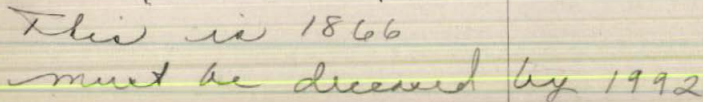 This is 1866
must be deceased by 1992